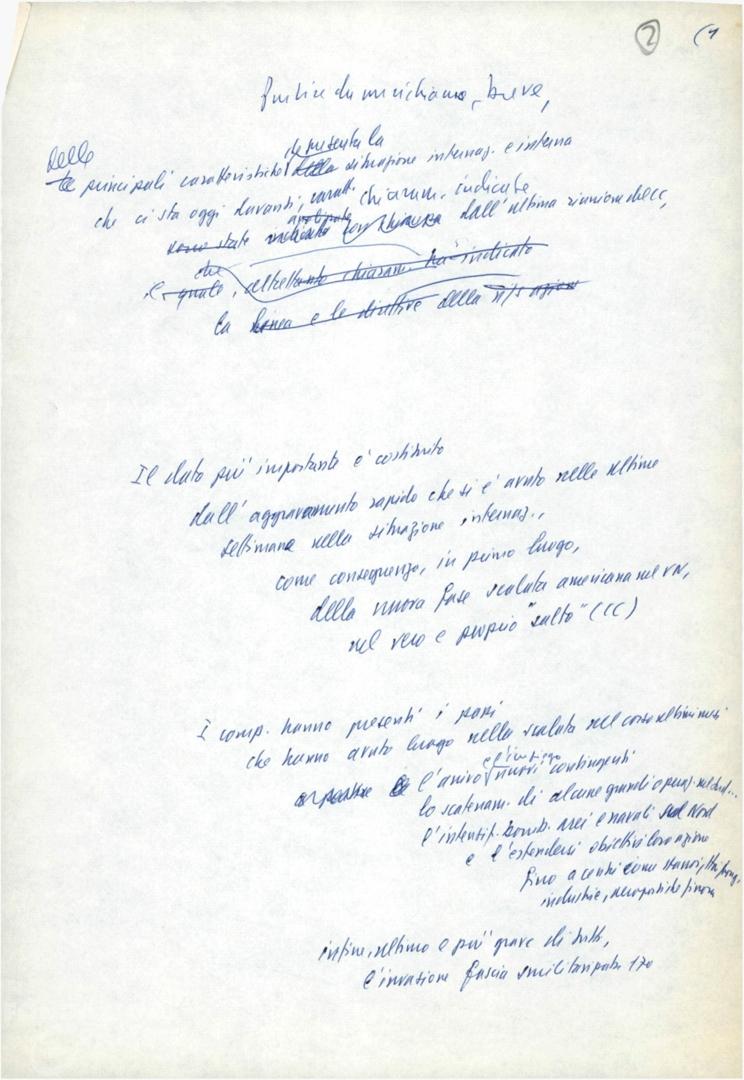 2 (1
breve,
delle che presenta la
principali caratteristiche situazione internaz. e interna
che ci sta oggi davanti, caratt. chiaram. indicate
sono state indicate con chiarezza dall'ultima riunione del CC,
che
quale, altrettanto chiaram. ha indicato
la linea e le direttive della ns/ azione
Il dato più importante è costituito
dall'aggravamento rapido che si è avuto nelle ultime
settimane nella situazione internaz.,
come conseguenza, in primo luogo,
della nuova fase scalata americana nel VN,
nel vero e proprio "salto" (CC)
I comp. hanno presenti i passi
che hanno avuto luogo nella scalata nel corso ultimi mesi
l'arrivo nuovi contingenti
lo scatenam. di alcune grandi operaz. nel sud...
l'intensif. bomb. aerei e navali sul Nord
e l'estendersi obiettivi loro azione
fino a centri come Hanoi, Haiphong,
industrie,
infine, ultimo e più grave di tutti,
l'invasione fascia smilitarizzata 17o